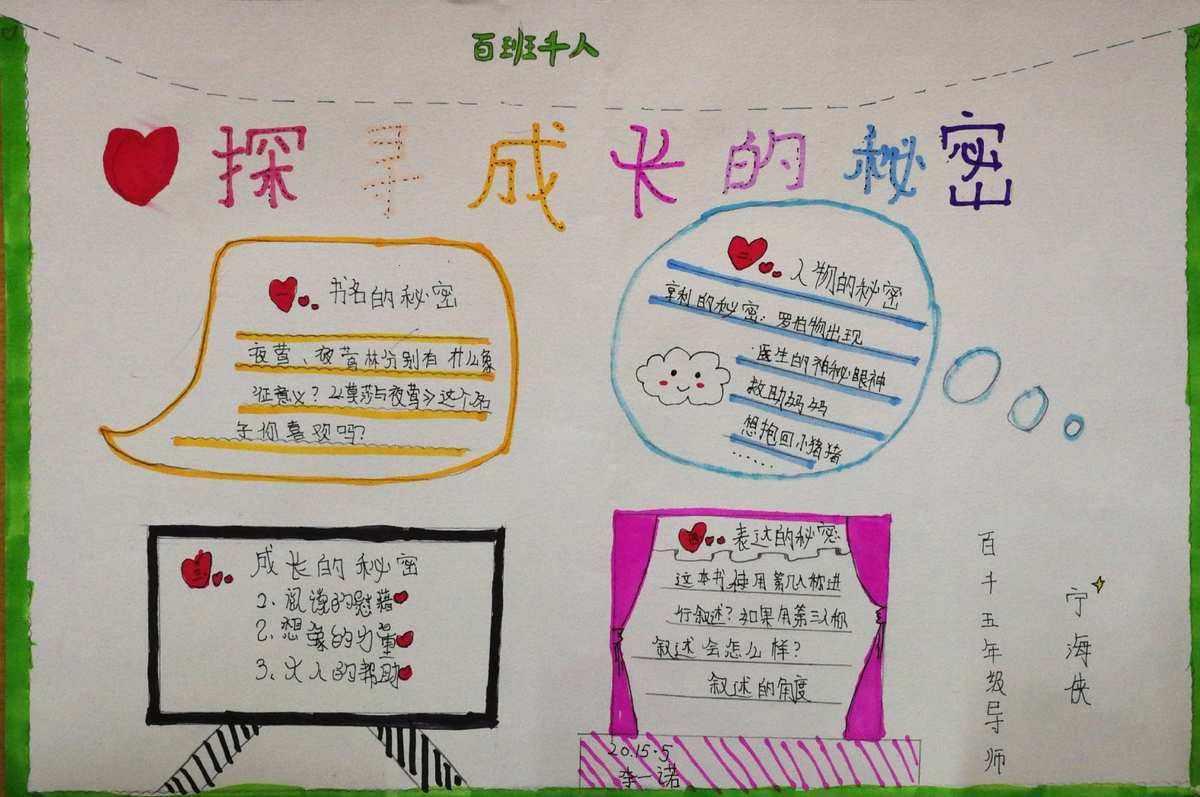 百班千人
探寻成长的秘密
一 书名的秘密
夜莺、夜莺林分别有什么象
征意义？《莫莎与夜莺》这个名
字你喜欢吗？
二 人物的秘密
亨利的秘密：罗伯物出现
医生的神秘眼神
救助妈妈
想抱回小猪猪
……
三 成长的秘密
1. 阅读的慰藉
2. 想象的力量
3. 大人的帮助
四 表达的秘密
这本书使用第几人称进
行叙述？如果用第三人称
叙述会怎么样？
叙述的角度
2015.5
李一诺
百千五年级导师
宁海侠